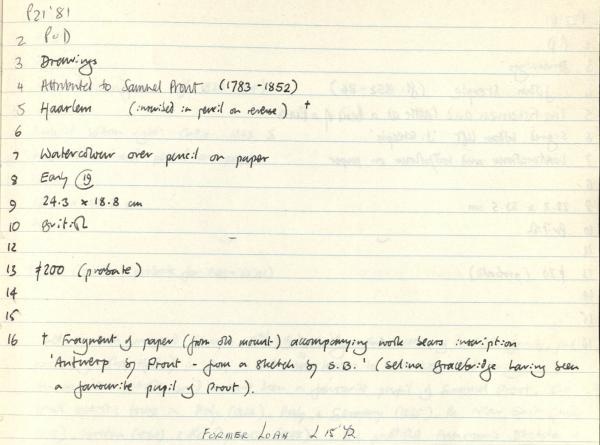 P21'81
2 P&D
3 Drawings
4 Attributed to Samuel Prout (1783-1852)
5 Haarlem (inscribed in pencil on reverse) †
6
7 Watercolour over pencil on paper
8 Early 19
9 24.3 × 18.8 cm
10 British
12
13 £200 (probate)
14
15
16 † Fragment of paper (from old mount) accompanying work bears inscription
'Antwerp by Prout - from a sketch by S.B.' (Selina Bracebridge having been
a favourite pupil of Prout).
FORMER LOAN L15'